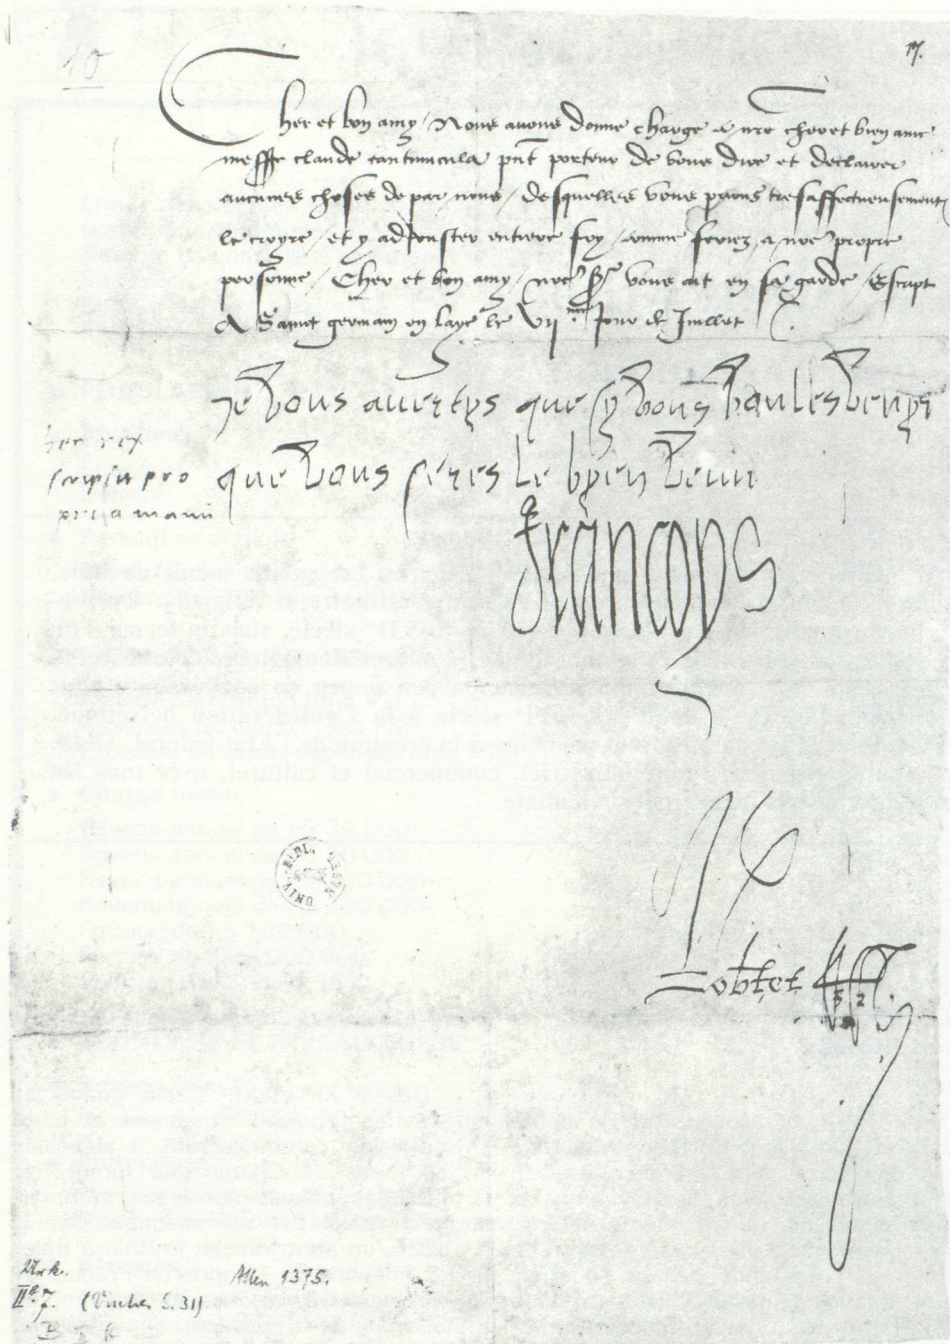 10
17.
Cher et bon amy / Nous avons donne charge a nre cher et bien ame
messe claude cantiuncula pnt porteur de vous dire et declairer
aucunes choses de par nous / desquelles vous prions tresaffectueusement
le croyre / et y adjouster entiere foy / comme feriez a nre propre
personne / Cher et bon amy / nre Sr vous ait en sa garde / Escript
A Sainct germain en laye le vii jour de Juillet
Je vous avertys que sy vous voulles venyr
que vous seres le byen venu
hec rex
scripsit pro
pria manu
Francoys
UNIV. BIBL.
Robtet
Urk.
IIa 7.
Allen 1375.
(Vischer S. 31)